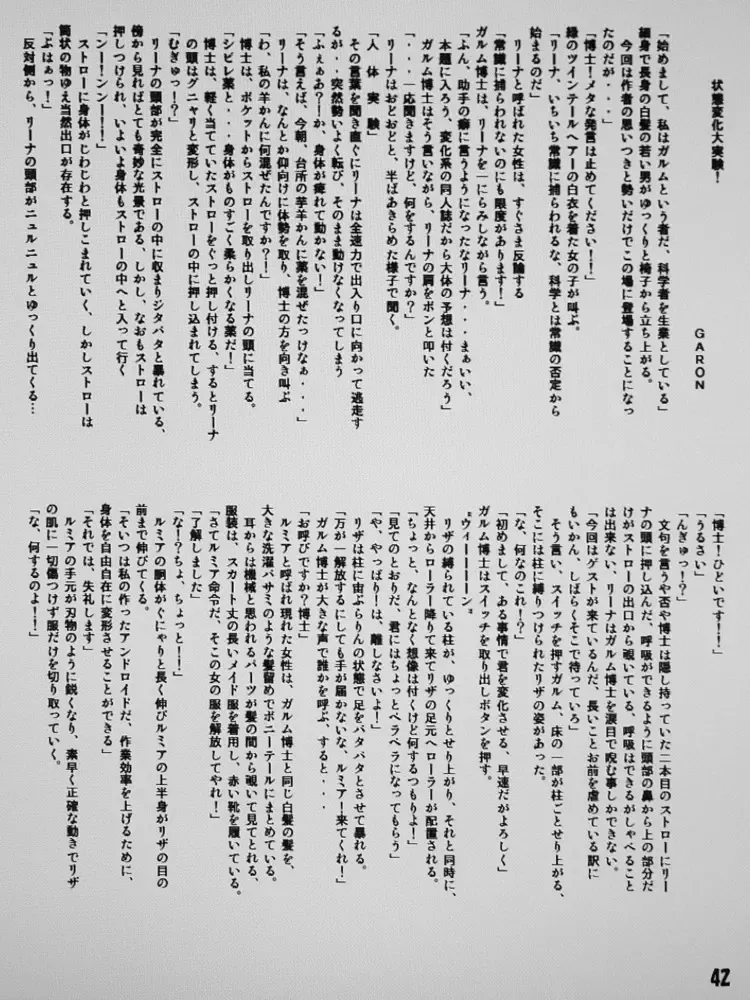 状態変化大実験！
ＧＡＲＯＮ
「始めまして、私はガルムという者だ、科学者を生業としている」
細身で長身の白髪の若い男がゆっくりと椅子から立ち上がる。
「今回は作者の思いつきと勢いだけでこの場に登場することになっ
たのだが・・・・」
「博士！メタな発言は止めてください！！」
緑のツインテールヘアーの白衣を着た女の子が叫ぶ。
「リーナ、いちいち常識に捕らわれるな、科学とは常識の否定から
始まるのだ」
リーナと呼ばれた女性は、すぐさま反論する
「常識に捕らわれないのにも限度があります！」
ガルム博士は、リーナを一にらみしながら言う。
「ふん、助手の癖に言うようになったなリーナ・・・まぁいい、
本題に入ろう、変化系の同人誌だから大体の予想は付くだろう」
ガルム博士はそう言いながら、リーナの肩をポンと叩いた
「・・・・一応聞きますけど、何をするんですか？」
リーナはおどおどと、半ばあきらめた様子で聞く。
「人 体 実 験」
その言葉を聞き直ぐにリーナは全速力で出入り口に向かって逃走す
るが・・突然勢いよく転び、そのまま動けなくなってしまう
「ふぇぁあ？！か、身体が痺れて動かない！」
「そう言えば、今朝、台所の芋羊かんに薬を混ぜたっけなぁ・・・」
リーナは、なんとか仰向けに体勢を取り、博士の方を向き叫ぶ
「わ、私の羊かんに何混ぜたんですか？！」
博士は、ポケットからストローを取り出しリーナの頭に当てる。
「シビレ薬と・・・身体がものすごく柔らかくなる薬だ！」
博士は、軽く当てていたストローをぐっと押し付ける、するとリーナ
の頭はグニャリと変形し、ストローの中に押し込まれてしまう。
「むぎゅっー！？」
リーナの頭部が完全にストローの中に収まりジタバタと暴れている、
傍から見ればとても奇妙な光景である、しかし、なおもストローは
押しつけられ、いよいよ身体もストローの中へと入って行く
「ンー！ンンーー！！」
ストローに身体がじわじわと押しこまれていく、しかしストローは
筒状の物ゆえ当然出口が存在する。
「ぶはぁっー！」
反対側から、リーナの頭部がニュルニュルとゆっくり出てくる…
「博士！ひどいです！！！」
「うるさい」
「んぎゅっ！？」
文句を言うや否や博士は隠し持っていた二本目のストローにリー
ナの頭に押し込んだ、呼吸ができるように頭部の鼻から上の部分だ
けがストローの出口から覗いている、呼吸はできるがしゃべること
は出来ない、リーナはガルム博士を涙目で睨む事しかできない。
「今回はゲストが来ているんだ、長いことお前を虐めている訳に
もいかん、しばらくそこで待っていろ」
そう言い、スイッチを押すガルム、床の一部が柱ごとせり上がる、
そこには柱に縛りつけられたリザの姿があった。
「な、何なのこれ！？」
「初めまして、ある事情で君を変化させる、早速だがよろしく」
ガルム博士はスイッチを取り出しボタンを押す。
"ウィーーーーン"
リザの縛られている柱が、ゆっくりとせり上がり、それと同時に、
天井からローラー降りて来てリザの足元へローラーが配置される。
「ちょっと、なんとなく想像は付くけど何するつもりよ！」
「見てのとおりだ、君にはちょっとペラペラになってもらう」
「や、やっぱり！は、離しなさいよ！」
リザは柱に宙ぶらりんの状態で足をバタバタとさせて暴れる。
「万が一解放するにしても手が届かないな、ルミア！来てくれ！」
ガルム博士が大きな声で誰かを呼ぶ、すると・・・・
「お呼びですか？博士」
ルミアと呼ばれ現れた女性は、ガルム博士と同じ白髪の髪を、
大きな洗濯バサミのような髪留めでポニーテールにまとめている。
耳からは機械と思われるパーツが髪の間から覗いて見てとれる、
服装は、スカート丈の長いメイド服を着用し、赤い靴を履いている。
「さてルミア命令だ、そこの女の服を解放してやれ！」
「了解しました」
「な！？ちょ、ちょっと！！」
ルミアの胴体がぐにゃりと長く伸びルミアの上半身がリザの目の
前まで伸びてくる。
「そいつは私の作ったアンドロイドだ、作業効率を上げるために、
身体を自由自在に変形させることができる」
「それでは、失礼します」
ルミアの手元が刃物のように鋭くなり、素早く正確な動きでリザ
の肌に一切傷つけず服だけを切り取っていく。
「な、何するのよ！！」
42